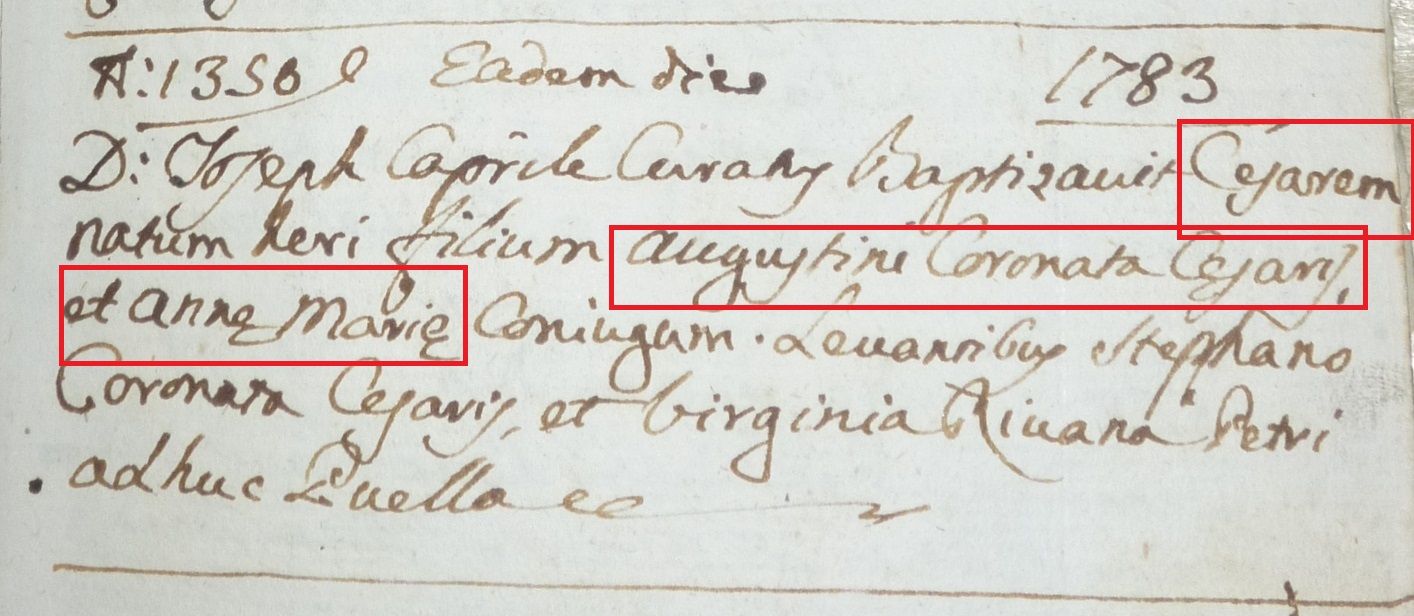 N: 1350 Eadem die 1783
D: Joseph Caprile Curatus Baptizavit Cesarem
natum heri filium Augustini Coronata Cesaris,
et Annę Marię Coniugum. Levantibus Stephano
Coronata Cesaris, et Virginia Rivana Petri
adhuc Puella